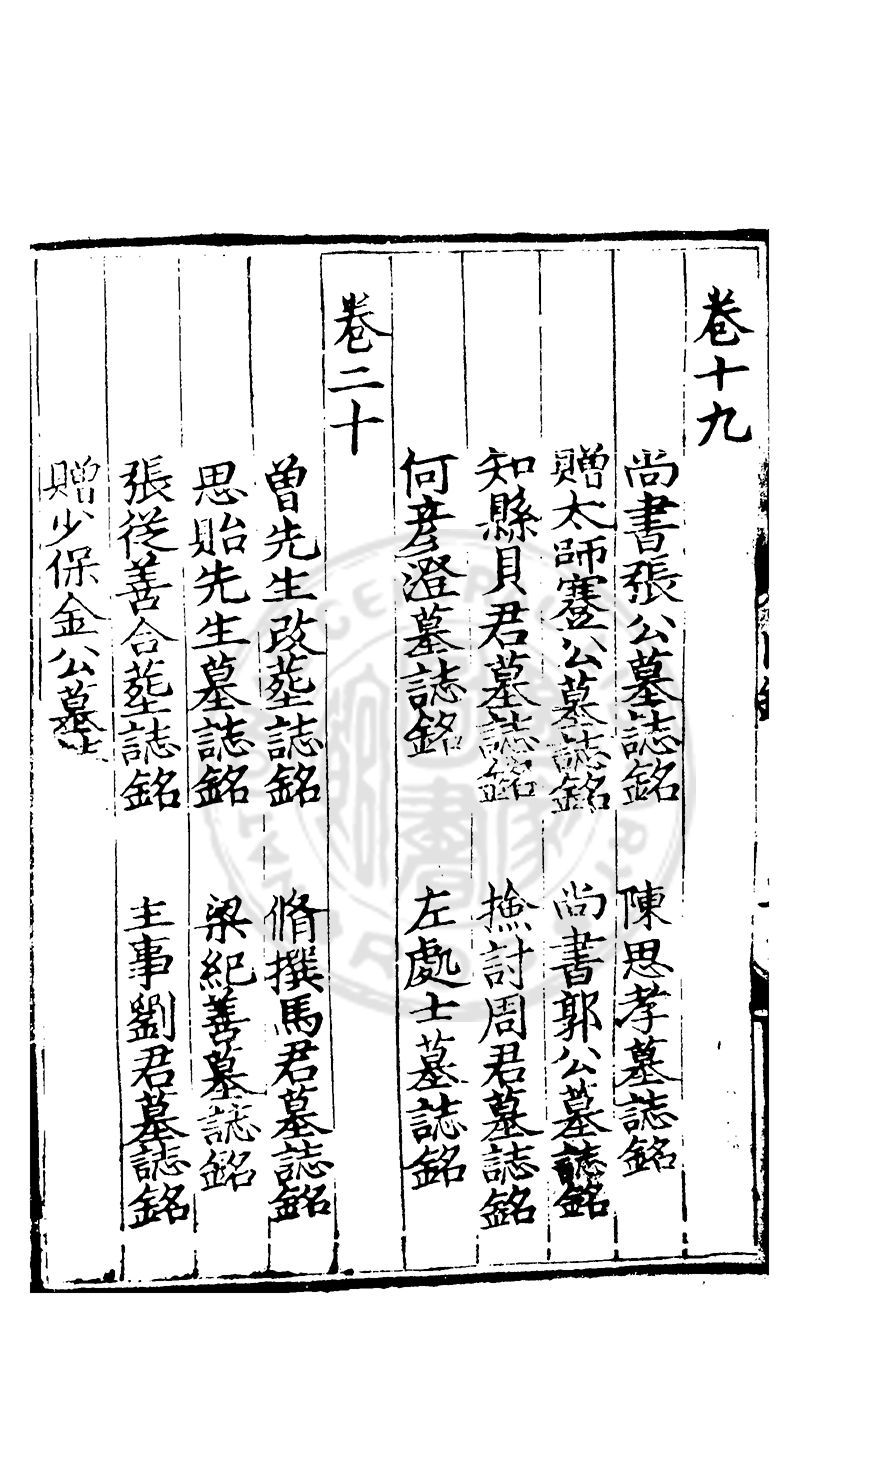 卷十九
尚書張公墓誌銘　陳思孝墓誌銘
贈太師蹇公墓誌銘　尚書郭公墓誌銘
知縣貝君墓誌銘　撿討周君墓誌銘
何彥澄墓誌銘　左處士墓誌銘
卷二十
曾先生改塟誌銘　脩撰馬君墓誌銘
思貽先生墓誌銘　梁紀善墓誌銘
張從善合塟誌銘　主事劉君墓誌銘
贈少保金公墓